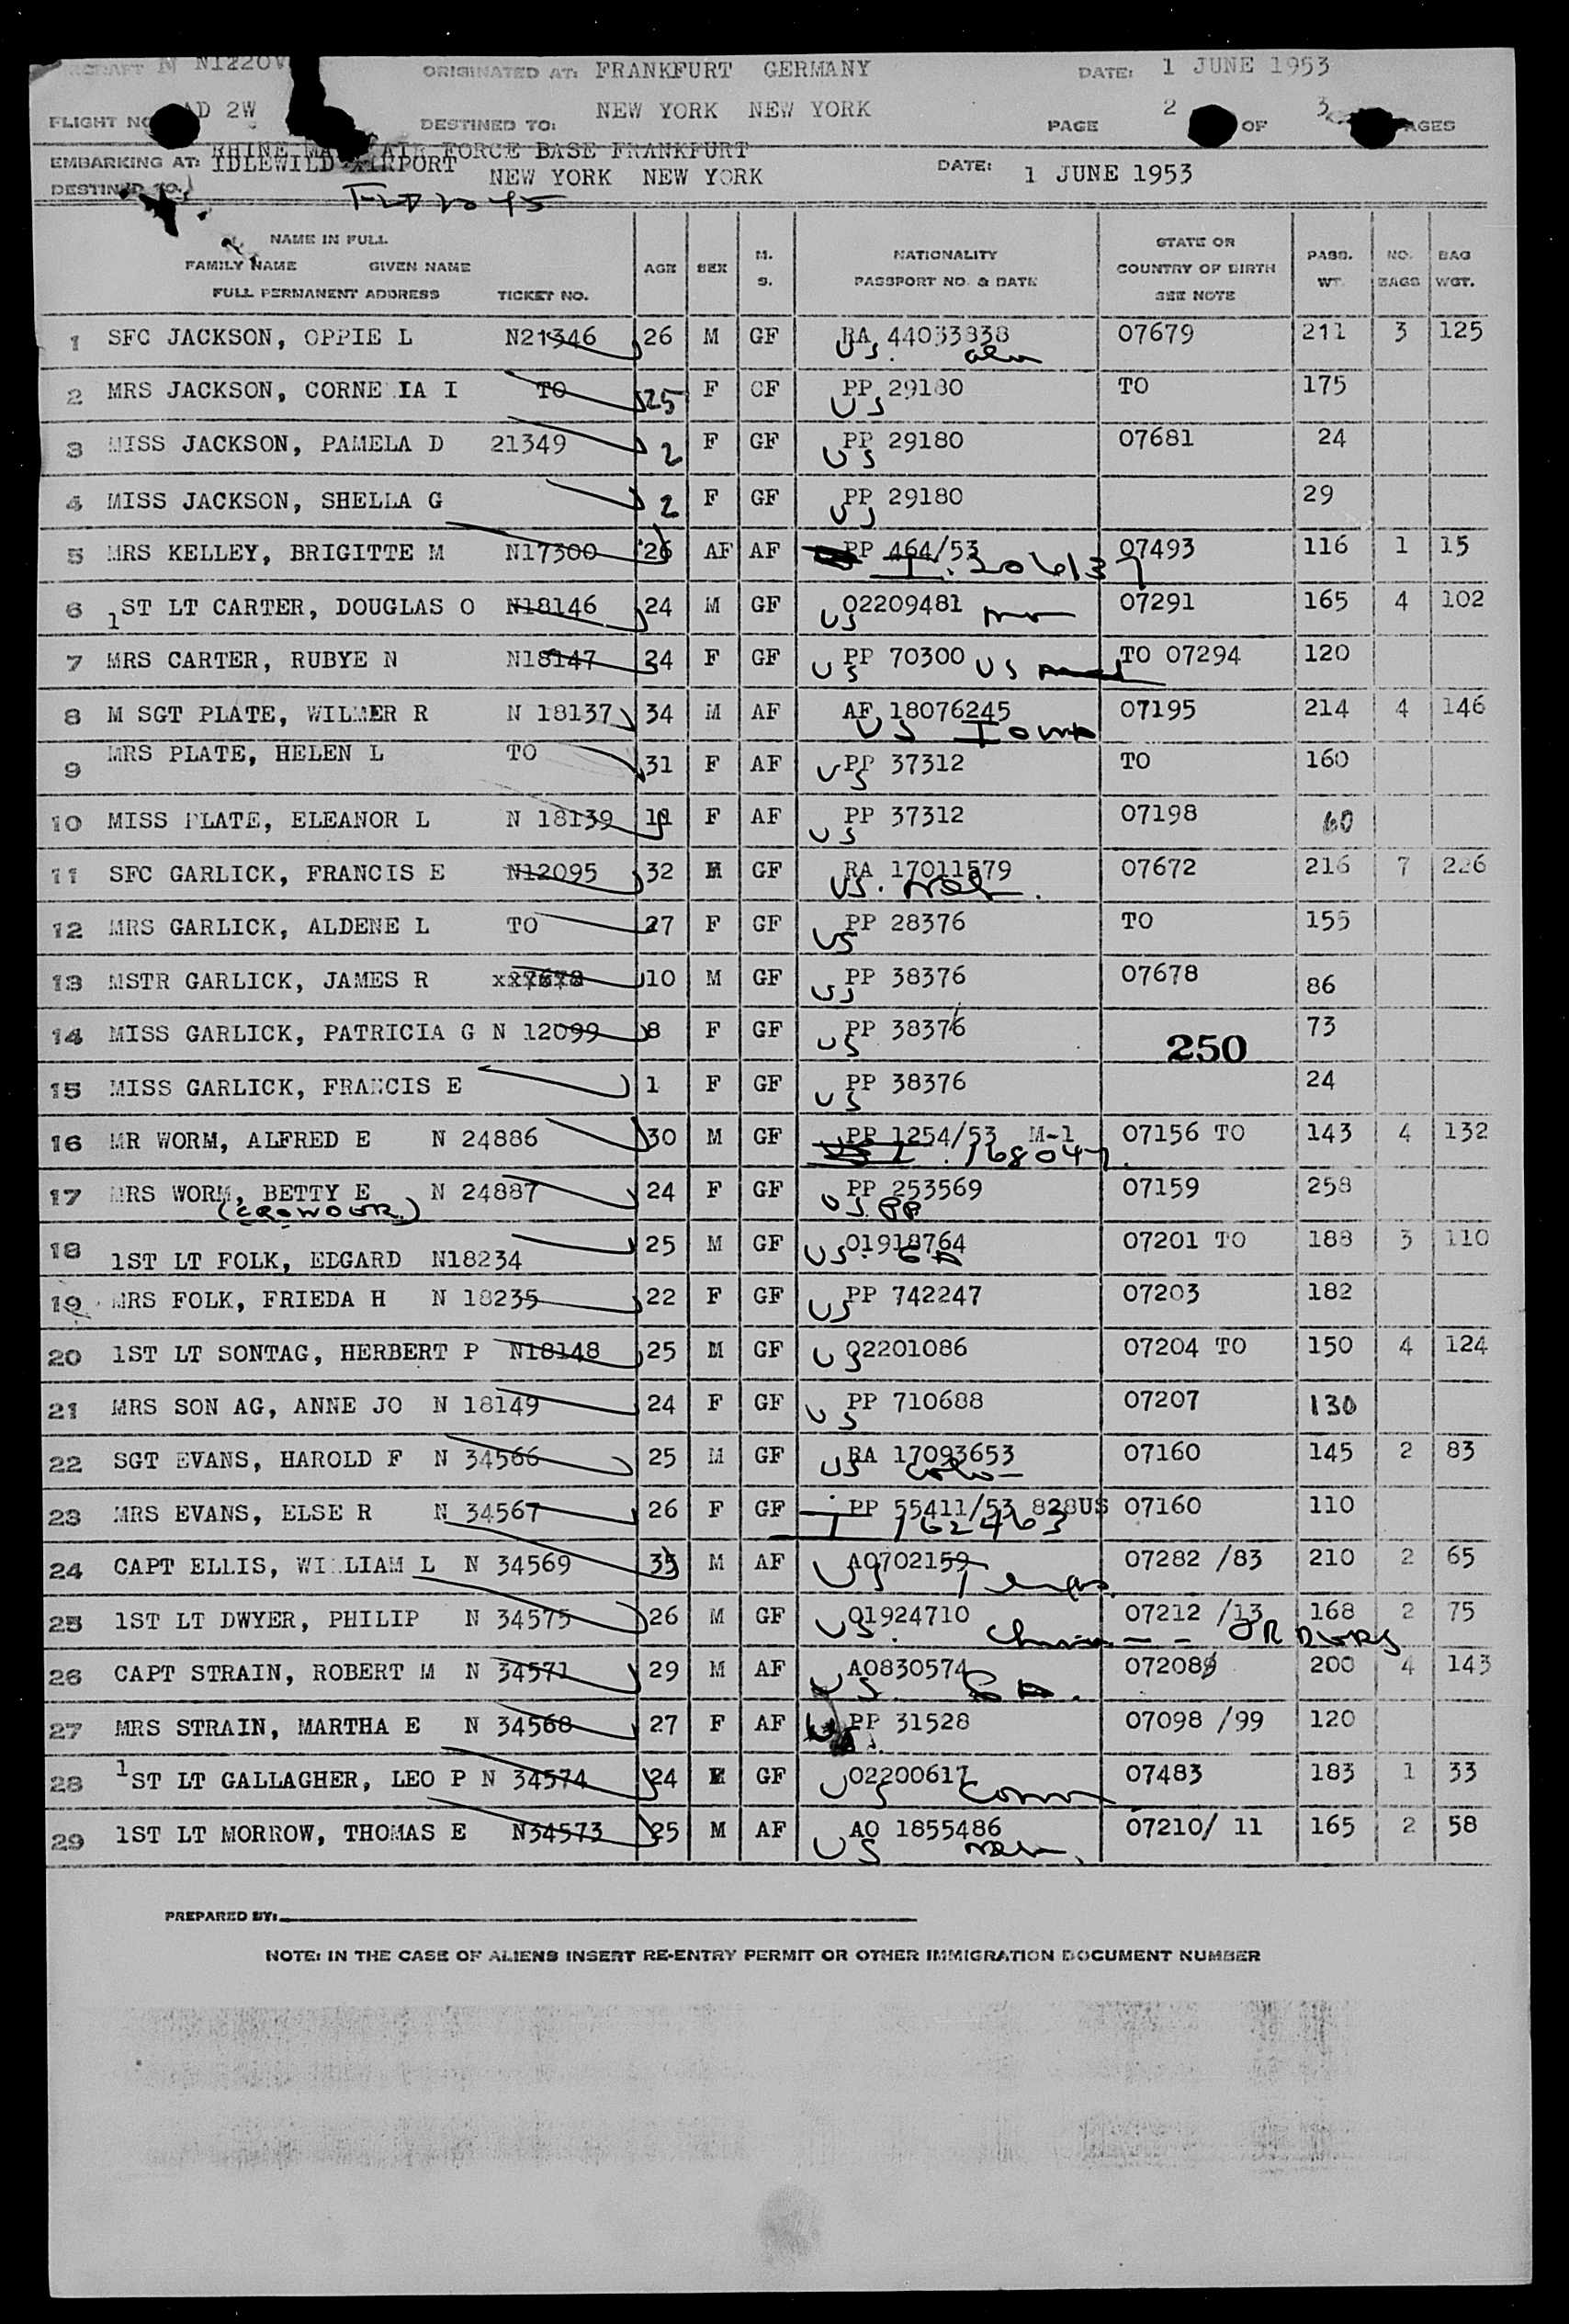 N N1220V ORIGINATED AT: FRANKFURT GERMANY DATE: 1 JUNE 1953
FLIGHT NO AD 2W DESTINED TO: NEW YORK NEW YORK PAGE 2 OF 3 AGES
EMBARKING AT: RHINE MA AIR FORCE BASE FRANKFURT DATE: 1 JUNE 1953
DESTINED TO. IDLEWILD AIRPORT NEW YORK NEW YORK
NAME IN FULL
FAMILY NAME GIVEN NAME
FULL PERMANENT ADDRESS TICKET NO.
AGE SEX M. S. NATIONALITY PASSPORT NO. & DATE STATE OR COUNTRY OF BIRTH SEE NOTE PASS. WT. NO. BAGS BAG WGT.
1 SFC JACKSON, OPPIE L N21346 26 M GF RA 44033838 07679 211 3 125
US. ala
2 MRS JACKSON, CORNE IA I TO 25 F CF PP 29180 TO 175
US
3 MISS JACKSON, PAMELA D 21349 2 F GF PP 29180 07681 24
US
4 MISS JACKSON, SHELLA G 2 F GF PP 29180 29
US
5 MRS KELLEY, BRIGITTE M N17300 26 AF AF PP 464/53 07493 116 1 15
I. 206137
6 1ST LT CARTER, DOUGLAS O N18146 24 M GF 02209481 07291 165 4 102
US
7 MRS CARTER, RUBYE N N18147 34 F GF PP 70300 US TO 07294 120
US
8 M SGT PLATE, WILMER R N 18137 34 M AF AF 18076245 07195 214 4 146
US Iowa
9 MRS PLATE, HELEN L TO 31 F AF PP 37312 TO 160
US
10 MISS PLATE, ELEANOR L N 18139 11 F AF PP 37312 07198 60
US
11 SFC GARLICK, FRANCIS E N12095 32 M GF RA 17011579 07672 216 7 226
US. Neb.
12 MRS GARLICK, ALDENE L TO 27 F GF PP 28376 TO 155
US
13 MSTR GARLICK, JAMES R xx7678 10 M GF PP 38376 07678 86
US
14 MISS GARLICK, PATRICIA G N 12099 8 F GF PP 38376 250 73
US
15 MISS GARLICK, FRANCIS E 1 F GF PP 38376 24
US
16 MR WORM, ALFRED E N 24886 30 M GF PP 1254/53 M-1 07156 TO 143 4 132
I. 168047.
17 MRS WORM, BETTY E N 24887 24 F GF PP 253569 07159 258
(CROWDER) US PP
18 1ST LT FOLK, EDGARD N18234 25 M GF 01918764 07201 TO 188 3 110
US. Ga
19 MRS FOLK, FRIEDA H N 18235 22 F GF PP 742247 07203 182
US
20 1ST LT SONTAG, HERBERT P N18148 25 M GF 02201086 07204 TO 150 4 124
US
21 MRS SON AG, ANNE JO N 18149 24 F GF PP 710688 07207 130
US
22 SGT EVANS, HAROLD F N 34566 25 M GF RA 17093653 07160 145 2 83
US Colo
23 MRS EVANS, ELSE R N 34567 26 F GF PP 55411/53 828US 07160 110
I 162463
24 CAPT ELLIS, WI LIAM L N 34569 35 M AF AO702159 07282 /83 210 2 65
US
25 1ST LT DWYER, PHILIP N 34575 26 M GF 01924710 07212 /13 168 2 75
US.
26 CAPT STRAIN, ROBERT M N 34571 29 M AF AO830574 072089 200 4 143
US.
27 MRS STRAIN, MARTHA E N 34568 27 F AF PP 31528 07098 /99 120
28 1ST LT GALLAGHER, LEO P N 34574 24 M GF 02200617 07483 183 1 33
US Conn
29 1ST LT MORROW, THOMAS E N34573 25 M AF AO 1855486 07210/ 11 165 2 58
US
PREPARED BY:
NOTE: IN THE CASE OF ALIENS INSERT RE-ENTRY PERMIT OR OTHER IMMIGRATION DOCUMENT NUMBER